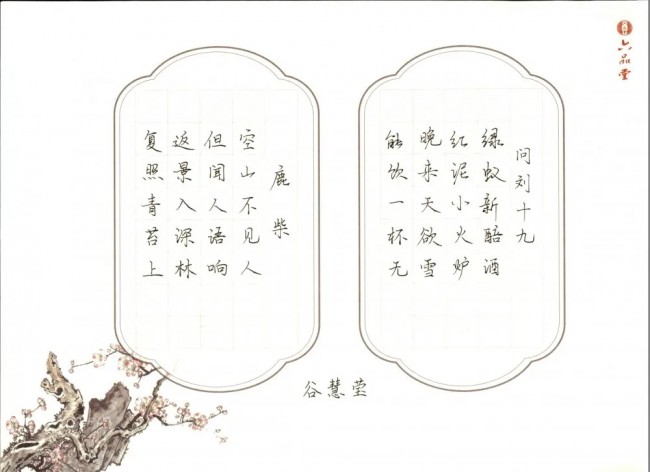 问刘十九
绿蚁新醅酒
红泥小火炉
晚来天欲雪
能饮一杯无
鹿柴
空山不见人
但闻人语响
返景入深林
复照青苔上
谷慧莹
六品堂